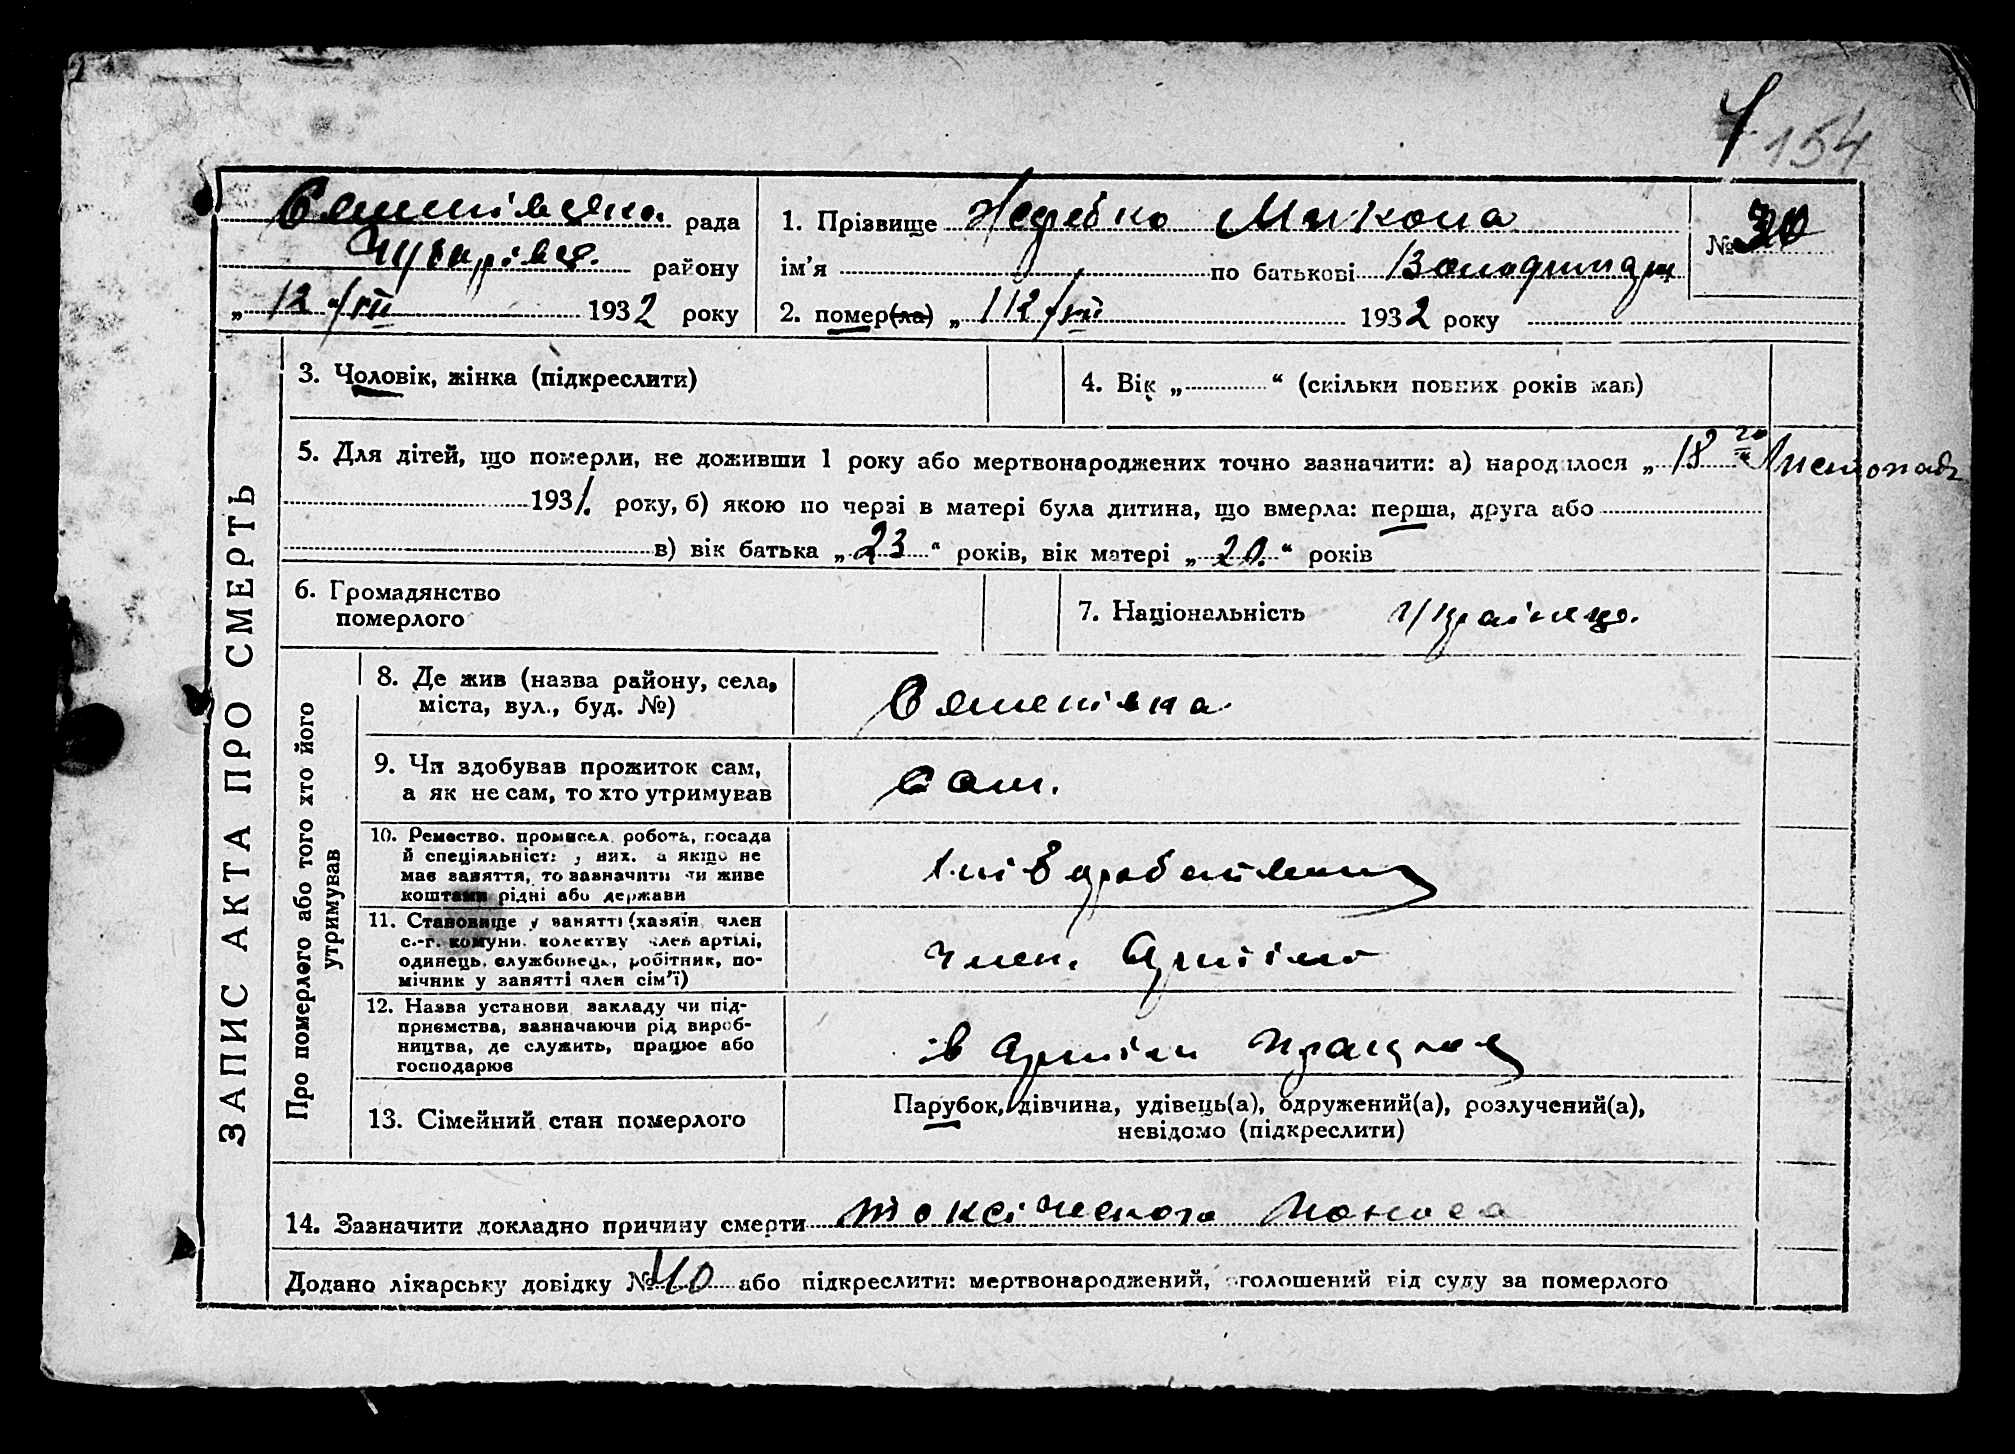 154
рада
району
„ 12 “/VII 1932 року
1. Прізвище Жеребко Микола
ім'я по батькові
№ 30
2. помер(ла) „ 12/VII 1932 року
ЗАПИС АКТА ПРО СМЕРТЬ
3. Чоловік, жінка (підкреслити)
4. Вік „ “ (скільки повних років мав)
5. Для дітей, що померли, не доживши 1 року або мертвонароджених точно зазначити: а) народилося „ 18 го “ Листопада
1931. року, б) якою по черзі в матері була дитина, що вмерла: перша, друга або
в) вік батька „ 23 “ років, вік матері „ 20. “ років
6. Громадянство
померлого
7. Національність Українец.
Про померлого або того хто його
утримував
8. Де жив (назва району, села,
міста, вул., буд. №)
9. Чи здобував прожиток сам,
а як не сам, то хто утримував
Сам.
10. Ремество, промисел, робота, посада
й спеціяльність у них, а якщо не
має заняття, то зазначити чи живе
коштами рідні або держави
11. Становище у занятті (хазяїн, член
с.-г. комуни, колективу член артілі,
одинець, службовець, робітник, по-
мічник у занятті член сім'ї)
член. Артілі
12. Назва установи, закладу чи під-
приємства, зазначаючи рід вироб-
ництва, де служить, працює або
господарює
в Артіли працює
13. Сімейний стан померлого
Парубок, дівчина, удівець(а), одружений(а), розлучений(а),
невідомо (підкреслити)
14. Зазначити докладно причину смерти токсіческого поноса
Додано лікарську довідку № 40 або підкреслити: мертвонароджений, оголошений від суду за померлого